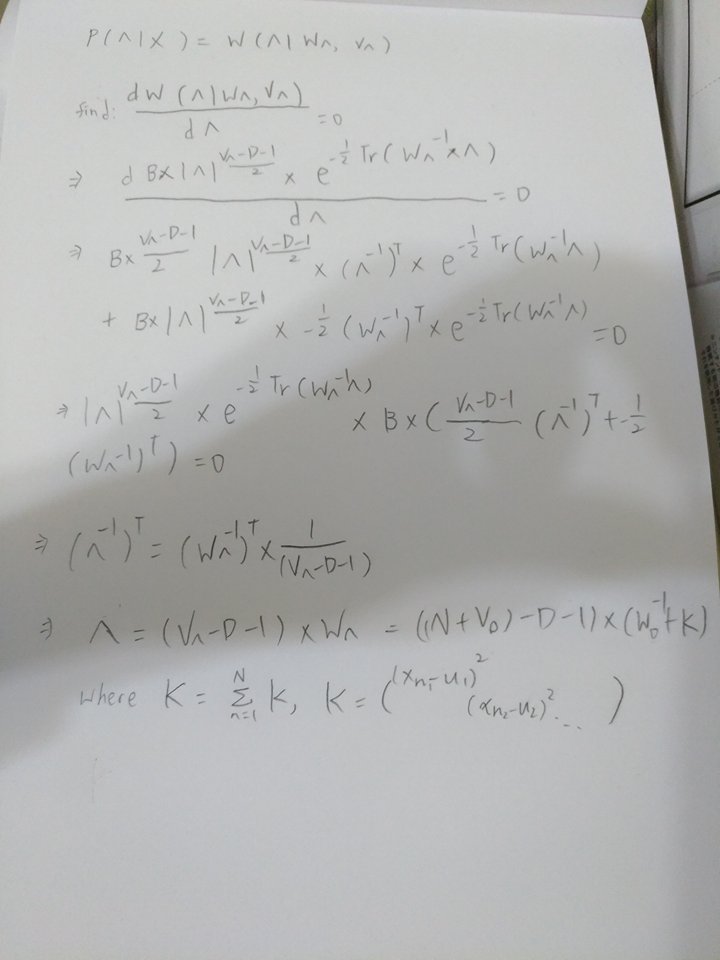 P(Λ|X) = W(Λ|W_Λ, V_Λ)
find: dW(Λ|W_Λ, V_Λ) / dΛ = 0
⇒ d B×|Λ|^((V_Λ-D-1)/2) × e^(-1/2 Tr(W_Λ^-1×Λ)) / dΛ = 0
⇒ B× (V_Λ-D-1)/2 |Λ|^((V_Λ-D-1)/2) × (Λ^-1)^T × e^(-1/2 Tr(W_Λ^-1Λ))
+ B×|Λ|^((V_Λ-D-1)/2) × -1/2 (W_Λ^-1)^T × e^(-1/2 Tr(W_Λ^-1Λ)) = 0
⇒ |Λ|^((V_Λ-D-1)/2) × e^(-1/2 Tr(W_Λ^-1Λ)) × B × ( (V_Λ-D-1)/2 (Λ^-1)^T + -1/2
(W_Λ^-1)^T) = 0
⇒ (Λ^-1)^T = (W_Λ^-1)^T × 1/(V_Λ-D-1)
⇒ Λ = (V_Λ-D-1) × W_Λ = ((N+V_0)-D-1) × (W_0^-1+K)
where K = Σ_{n=1}^{N} k, K = ( (x_n1-u_1)^2 (x_n2-u_2)^2 ... )